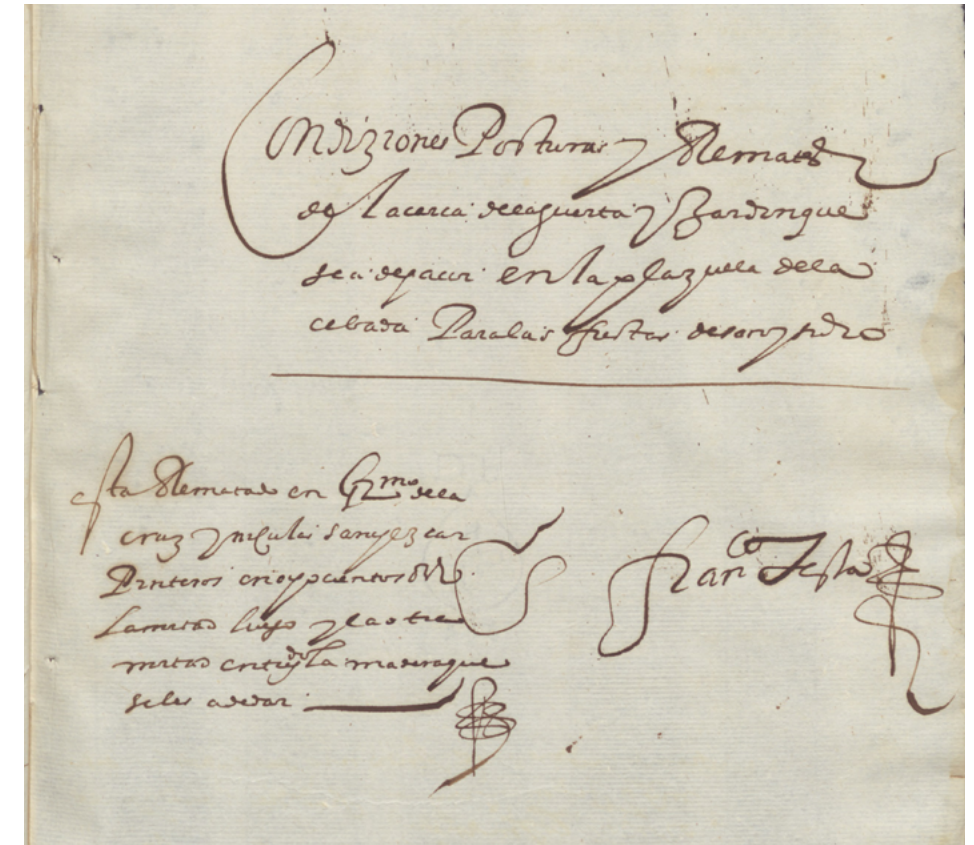 Condiziones Posturas y Remates
de la cerca de la guerta y Jardin que
se a de hacer en la plazuela de la
cebada Para las fiestas de san ysidro
esta Rematado en Gmo de la
cruz y niculas sanchez car
Pinteros en ochocientos Rs
la mitad luego y la otra
mitad en la madera que
se les a de dar
franco Testa